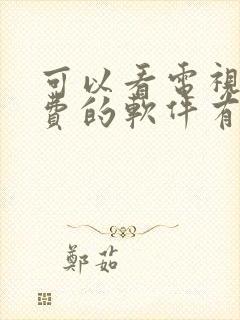 可以看電視
費的軟件有
鄭茹